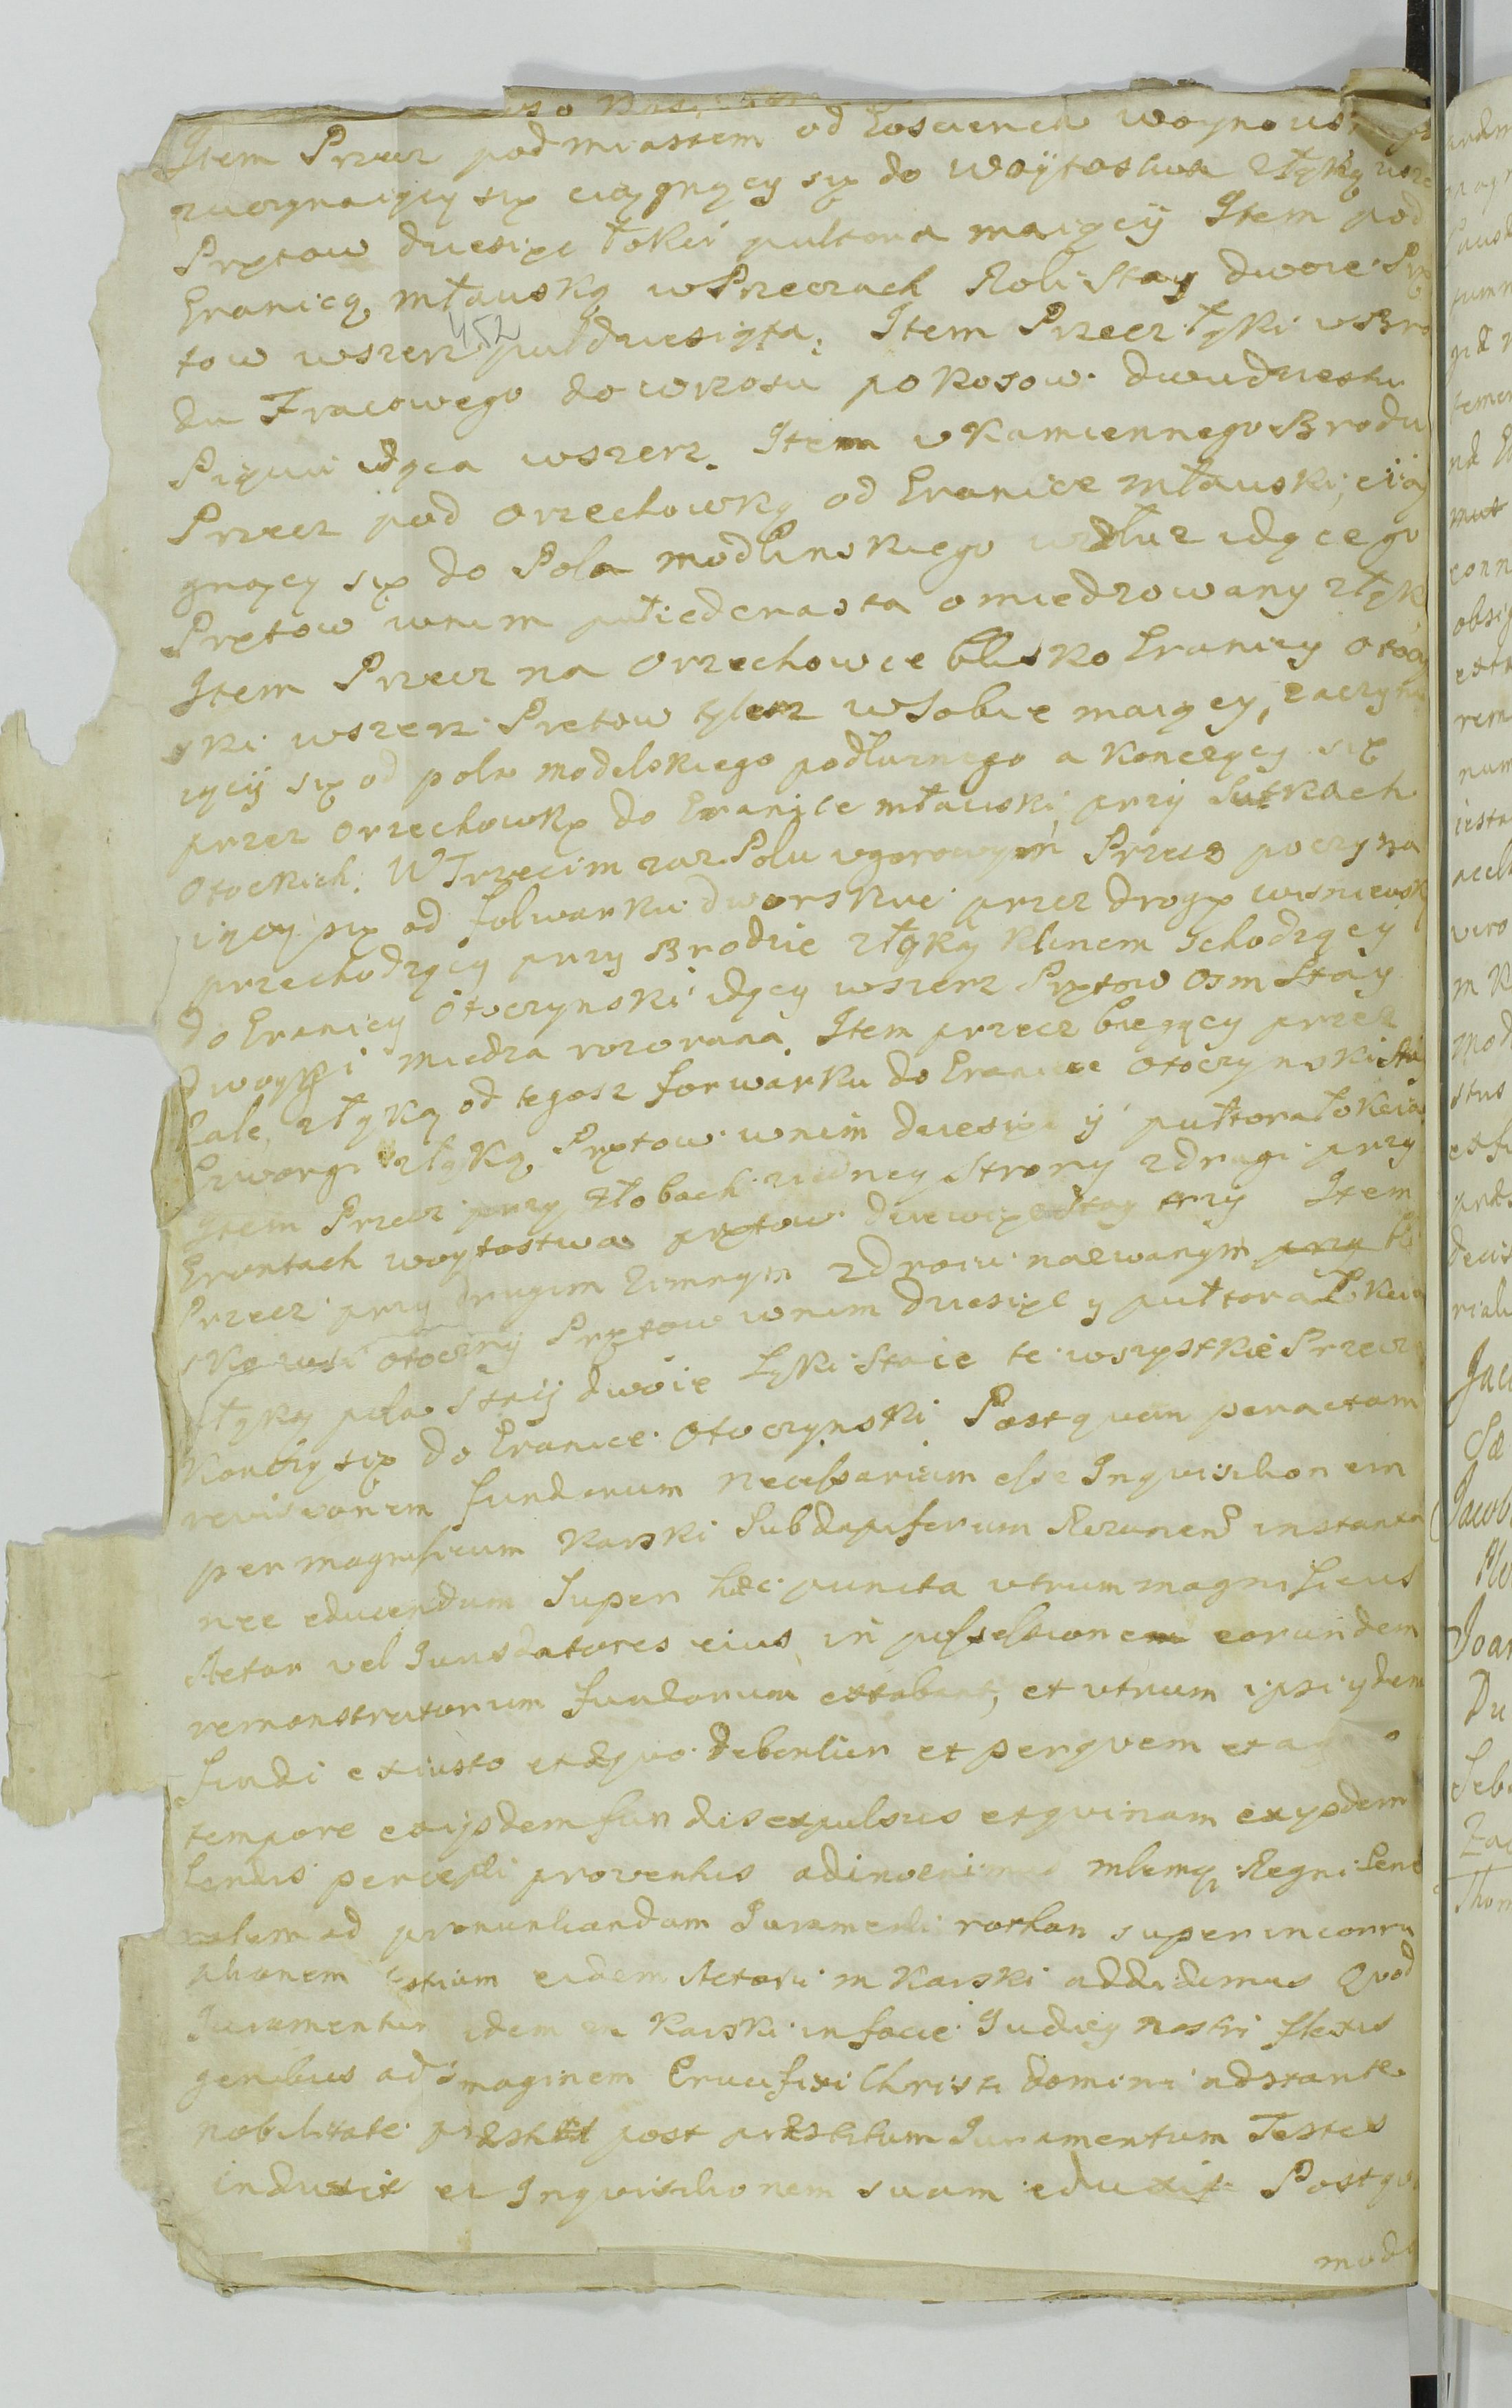 Item Przecz podmiastem od Goscienca
zuczynaiący się ciągnący się do Woÿtostwa złąką wsze
Prętow dziesięc łokci pułtora maiącÿ Item pod
Granicą mławską w Przeczach Roli Stay dwoie Prę
tow wszerz pułdziesięta. Item Przecz łąki v Bro
452
du Fracowego do wrzosu po kosow dwudziestu
Pięciu idąca wszerz. Item v Kamiennego Brodu
Przecz pod Orzechowką od Granice mławski, cią
gnący się do Pola modlinskiego wdłuz idącego
Prętow wnim pułiedenasta omiedzowany złąk
Item Przecz na Orzechowce blisko Granicy otoc
ski wszerz Prętow tylesz wSobie maiący, zaczyna
iącÿ się od pola modelskiego podłuznego a konczący się
przez Orzechowkę do Granice mławski przÿ Sutkach
Otockich. W Trzecim zas Polu vgorowym Przecz poczyna
iący się od folwarku dworskiei przez drogę wisniewsk
przechodzący przy Brodzie złąką klinem schodzącÿ
do Granicy Otoczynski idący wszerz Prętow osm Stay
dwoy i miedza rozorana. Item przecz biezący przez
Gale, złąką od tegosz forwarku do Granice Otoczynski Stay
złąką, Prętow wnim dziesięc ÿ pułtora Łokcia
Item Przecz przy Złobach ziedney Strony zdrugi przy
Gruntach woytostwa prętow dziewięc Stay trzy Item
Przecz przy drugim zimnym zdroiu nazwanym przy bli
sko wsi otoczny Prętow wnim dziesięc y pułtora Łokcia
złąką pola Staÿ dwoie Łąki Staie te wszystkie Przecze
Konczy się do Granice Otoczynski Postquam peractam
revisionem fundorum necessarium esse Inquisitionem
per magnificum Karski Subdapiferum Rozanen instanta
nee educendum Super hæc puncta vtrum magnificus
Actor vel Iurisdatores eius in possessionem eorundem
remonstratorum fundorum extabant, et vtrum ipsi ydem
fundi exiusto etæquo debentur et perquem et a
tempore exijsdem fundis expulsus etquinam exysdem
fundis percepti proventus adinvenimus mlemq Regni Gene
ralem ad pronuntiandam Juramenti rotham super incorru
ptionem testium eidem Actori m Karski addidimus Quod
Juramentum idem m Karski infacie Judicy nostri flexis
genibus ad imaginem Crucifixi Christi domini adstante
nobilitate præstitit post præstitum Juramentum Testes
induxit et Inquisitionem suam eduxit Postqu
modu